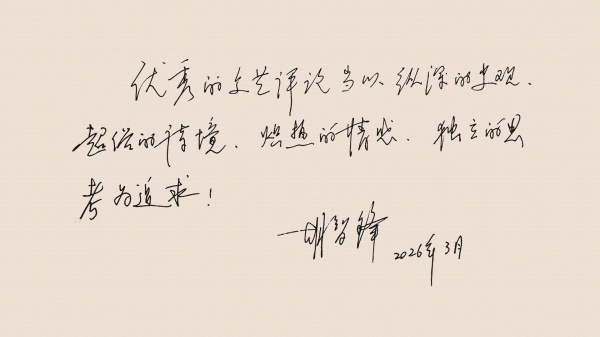 优秀的文艺评论当以纵深的史观、
超俗的诗境、炽热的情感、独立的思
考为追求！
一胡智锋 2026年3月